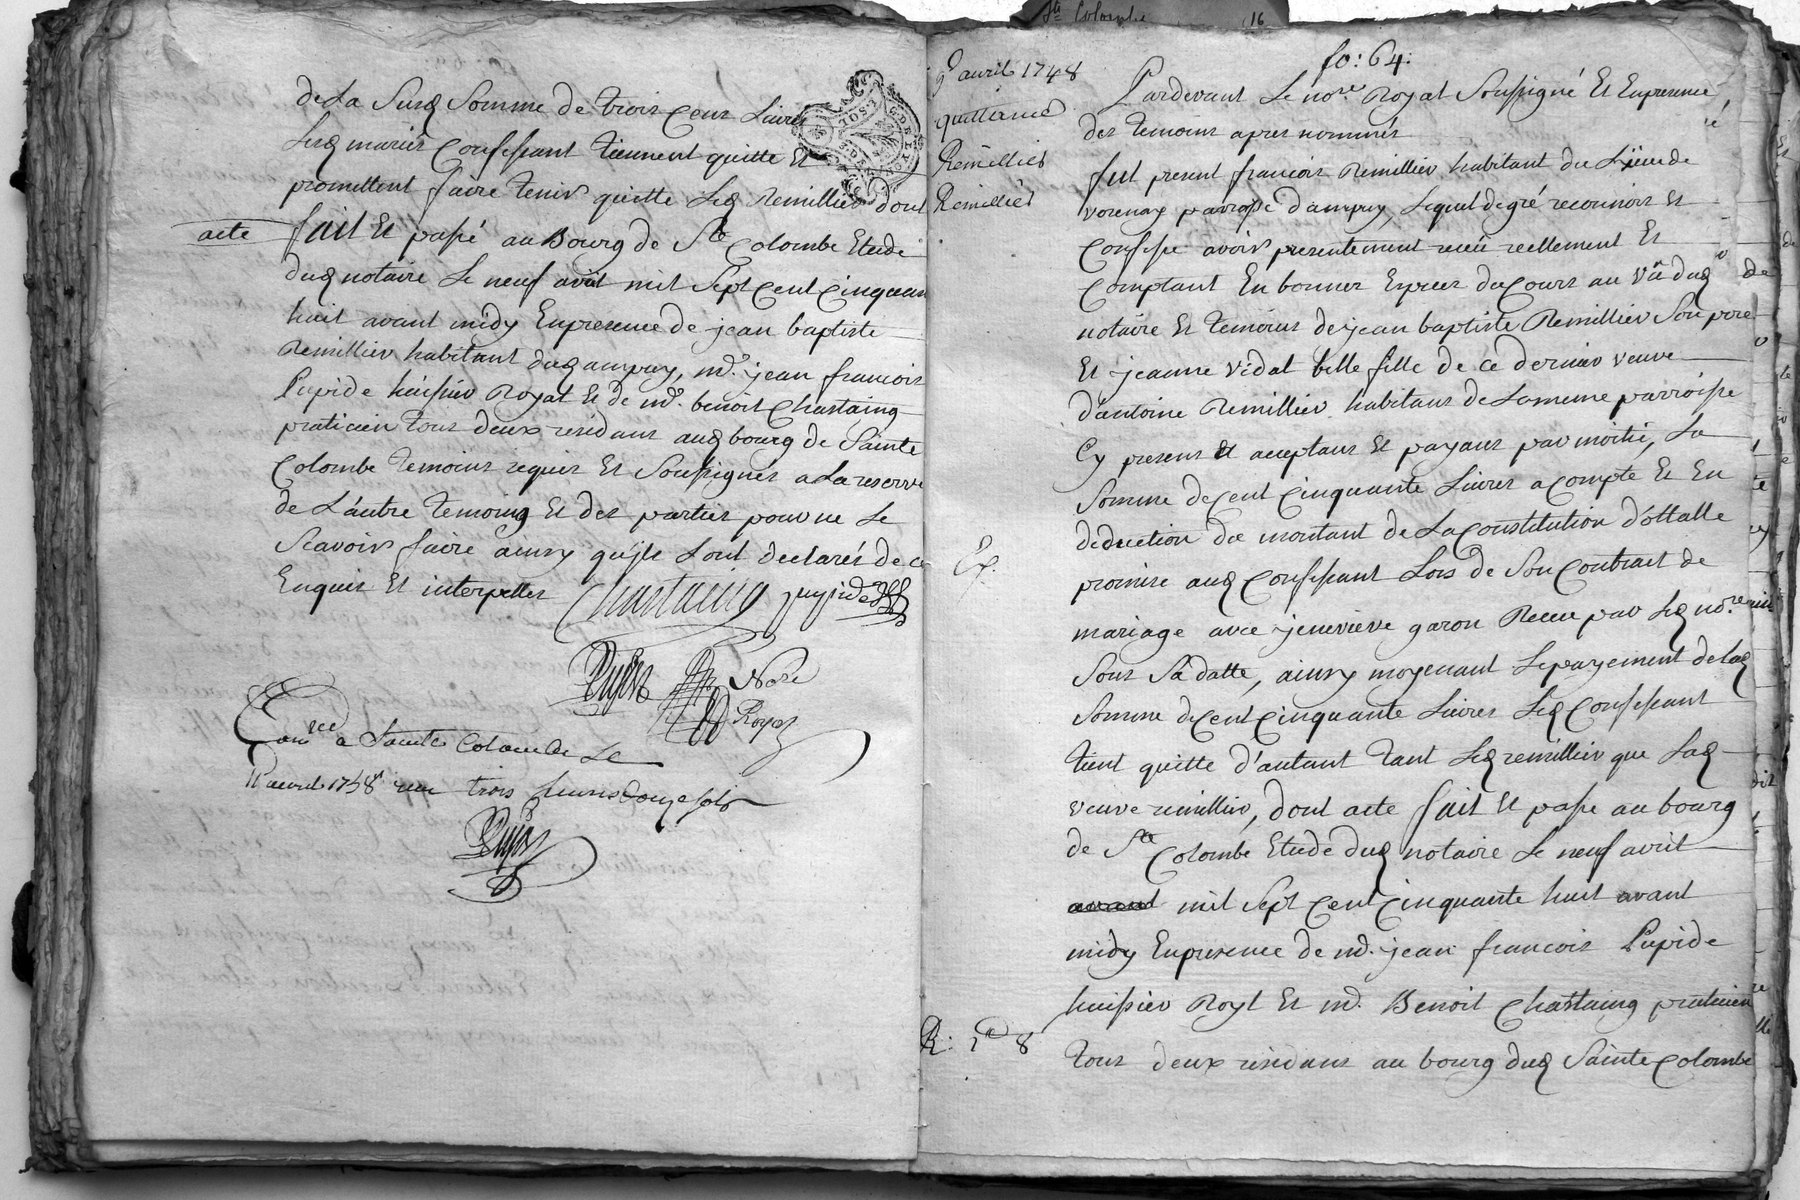 Ste Colombe 16
de La Susd Somme de trois Cens Livres
Lesd mariés Confessant tiennent quitte Et
promettent faire tenir quitte Led Remillier dont
acte fait Et passé au Bourg de Ste Colombe Etude
dud notaire Le neuf avril mil Sept Cent Cinquan
huit avant midy En presence de jean baptiste
Remillier habitant dud ampuy, md. jean francois
Pupide huissier Royal Et de md. benoit Chastaing
praticien tous deux residans aud bourg de Sainte
Colombe temoins requis Et Soussignés a La reserve
de L'autre temoing Et des parties pour ne Le
Scavoir faire ainsy qu'ils L'ont declarés de ce
Enquis Et interpellés Chastaing pupide
Nore
Royal
Conrollé a Sainte Colombe Le
avril 1758 reçu trois livres douze sols
fo: 64:
9 avril 1748
quittance
Remillier
Remillier
Pardevant Le nore. Royal Soussigné Et En presence
des temoins apres nommés
fut present francois Remillier habitant du Lieu de
verenay parroisse d'ampuy, Lequel de gré reconnois Et
Confesse avoir presentement reçeu reellement Et
Comptant En bonnes Especes du Cours au Vû dud
notaire Et temoins de jean baptiste Remillier Son pere
Et jeanne Vidal belle fille de ce dernier veuve
d'antoine Remillier habitans de La meme parroisse
Cy presens Et acceptans Et payans par moitié, La
Somme de Cent Cinquante Livres a Compte Et En
deduction du montant de La Constitution dottalle
promise aud Confessant Lors de Son Contract de
mariage avec jenevieve garon Receu par Led nore
Sous Sa datte, ainsy moyenant Le payement de Lad
Somme de Cent Cinquante Livres Led Confessant
tient quitte d'autant tant Led remillier que Lad
veuve remillier, dont acte fait Et passé au bourg
de Ste Colombe Etude dud notaire Le neuf avril
avant mil Sept Cent Cinquante huit avant
midy En presence de md. jean francois Pupide
huissier Royl Et md. Benoit Chastaing praticien
tous deux residans au bourg dud Sainte Colombe